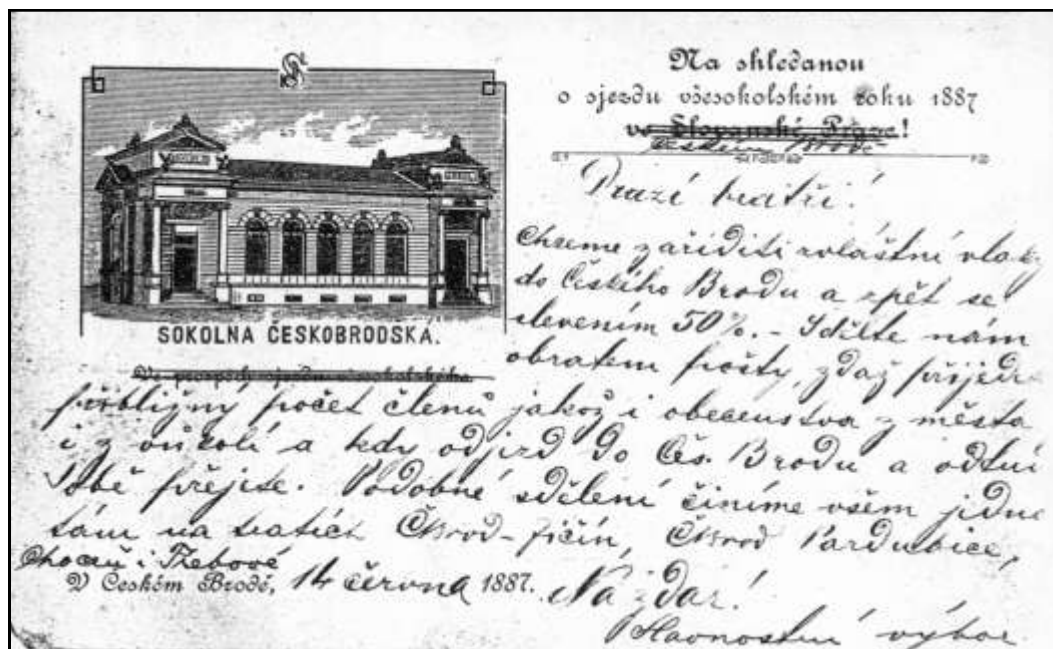 Na shledanou
o sjezdu všesokolském roku 1887
ve Slovanské Praze!
Českém Brodě
SOKOLNA ČESKOBRODSKÁ.
V prospěch sjezdu všesokolského
Drazí bratři!
Chceme zaříditi zvláštní vlaky
do Českého Brodu a zpět se
slevením 50%. - Sdělte nám
obratem pošty, zdaž přijede
přibližný počet členů jakož i obecenstva z města
i z okolí a kdy odjezd do Čes. Brodu a odtud
sobě přejete. Podobné sdělení činíme všem jedno
tám na tratích ČBrod-Jičín, ČBrod Pardubice,
Choceň i Třebové
V Českém Brodě, 14 června 1887. Na zdar!
Slavnostní výbor